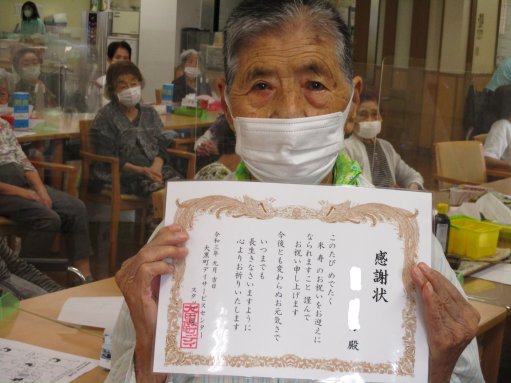 感謝状
殿
このたび めでたく
米寿 のお祝いをお迎えに
なられますこと 謹んで
お祝い申し上げます
今後とも変わらぬお元気さで
いつまでも
長生きなさいますように
心よりお祈りいたします
令和三年 九月 吉日
大黒町デイサービスセンター